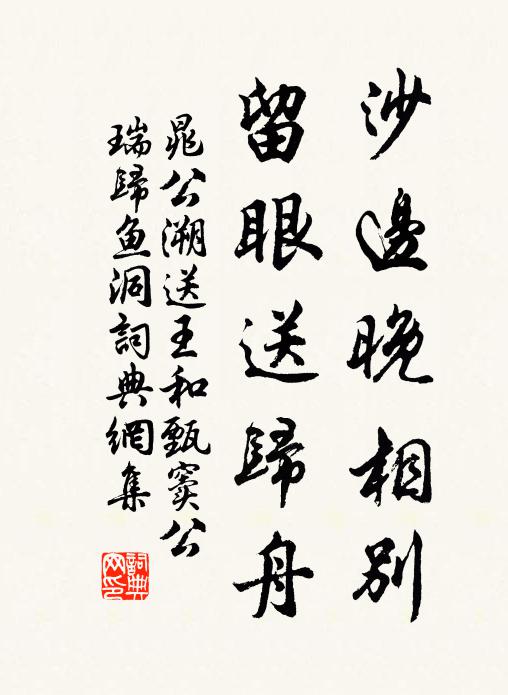 沙邊晚相別
留眼送歸舟
晁公溯送王和甄窦公
瑞歸魚洞詞典網集
詞典
网印